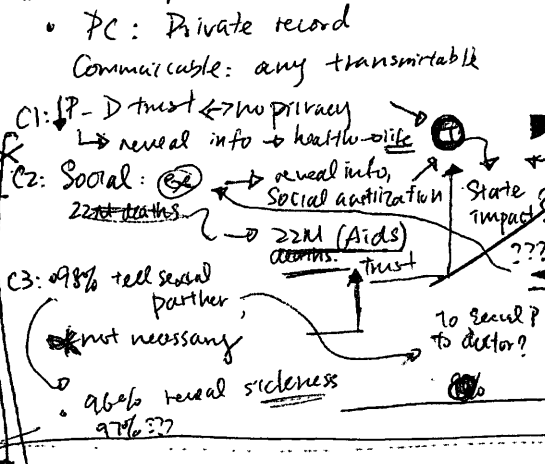 • PC: Private record
Commaiccable: any transmirtable
C1: ↓P-D trust <-> no privacy
↳ reveal info → health → life
C2: Social: → reveal info,
Social
22M deaths
→ 22M (Aids)
deaths.
trust
State
impact?
???
C3: 98% tell sexual
parther,
not necessary
To
to doctor?
%
• 96% reveal sickness
97% ???